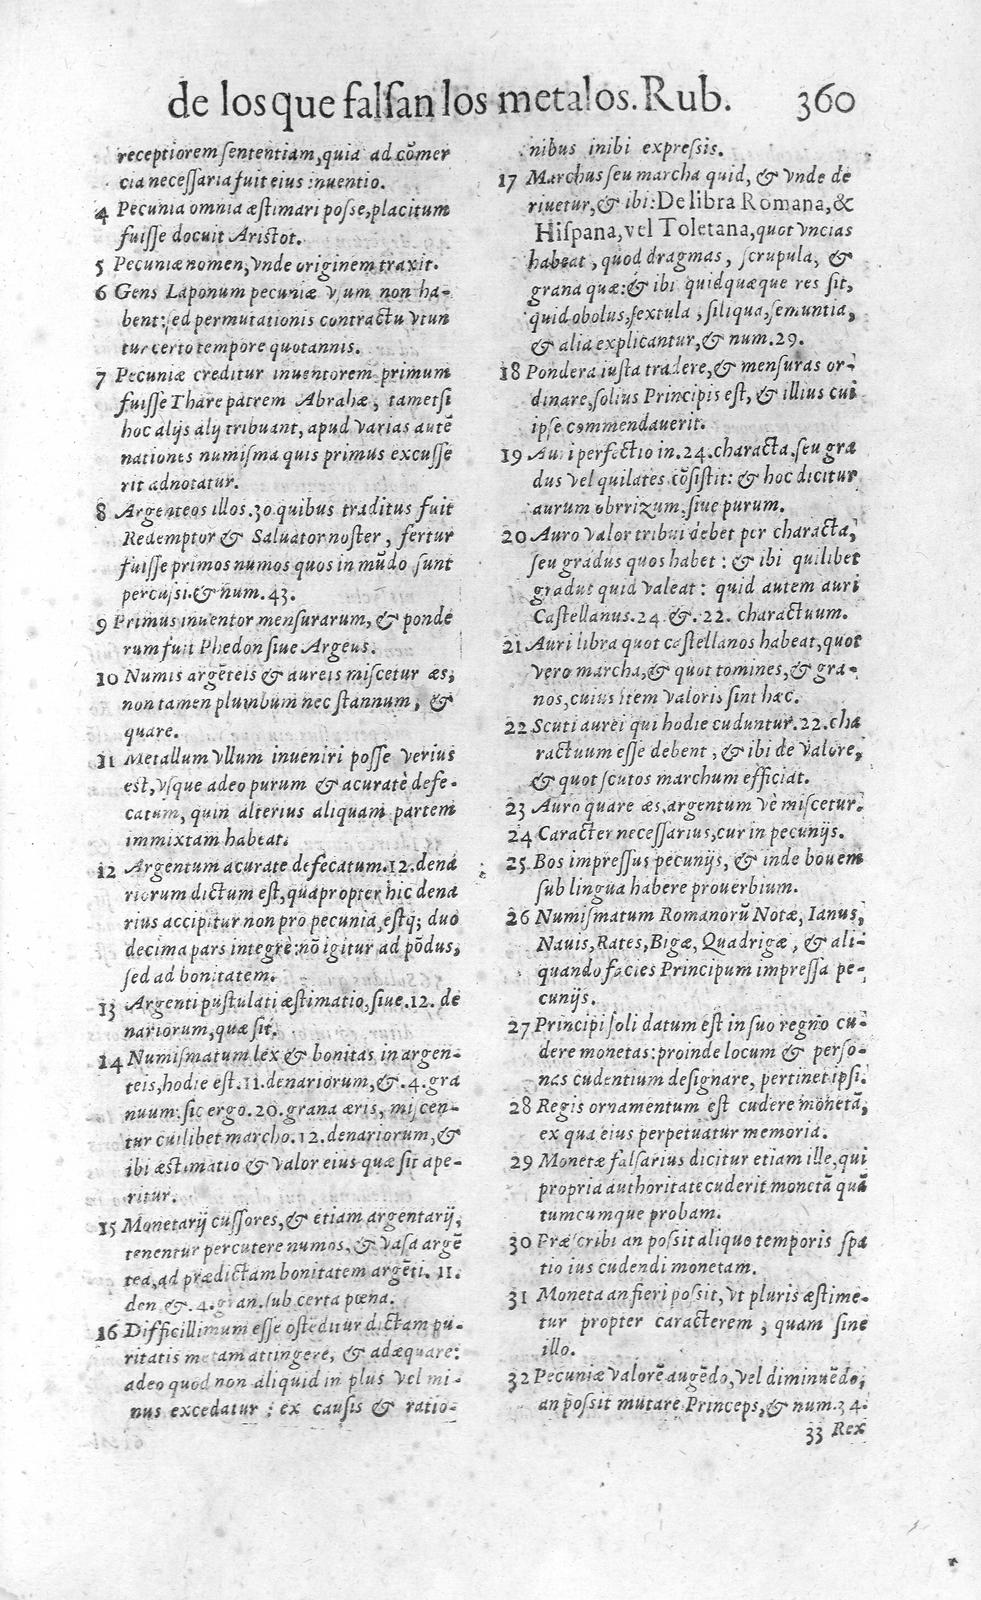 de los que falsan los metalos. Rub. 360
receptiorem sententiam, quia ad cõmer
cia necessaria fuit eius inuentio.
4 Pecunia omnia æstimari posse, placitum
fuisse docuit Aristot.
5 Pecuniæ nomen, vnde originem traxit.
6 Gens Laponum pecuniæ vsum non ha-
bent: sed permutationis contractu vtun
tur certo tempore quotannis.
7 Pecuniæ creditur inuentorem primum
fuisse Thare patrem Abrahæ, tametsi
hoc alijs alij tribuant, apud varias autẽ
nationes numisma quis primus excusse
rit adnotatur.
8 Argenteos illos. 30. quibus traditus fuit
Redemptor & Saluator noster, fertur
fuisse primos numos quos in mũdo sunt
percussi. & num. 43.
9 Primus inuentor mensurarum, & ponde
rum fuit Phedon siue Argeus.
10 Numis argẽteis & aureis miscetur æs,
non tamen plumbum nec stannum, &
quare.
11 Metallum vllum inueniri posse verius
est, vsque adeo purum & acuratè defe-
catum, quin alterius aliquam partem
immixtam habeat.
12 Argentum acurate defecatum. 12. dena
riorum dictum est, quapropter hic dena
rius accipitur non pro pecunia, estq; duo
decima pars integrè: nõ igitur ad põdus,
sed ad bonitatem.
13 Argenti pustulati æstimatio, siue. 12. de
nariorum, quæ sit.
14 Numismatum lex & bonitas in argen-
teis, hodie est. 11. denariorum, &. 4. gra
nuum: sic ergo. 20. grana æris, miscen-
tur cuilibet marcho. 12. denariorum, &
ibi æstimatio & valor eius quæ sit ape-
ritur.
15 Monetarij cussores, & etiam argentarij,
tenentur percutere numos, & vasa argẽ
tea, ad prædictam bonitatem argẽti. 11.
den &. 4. gran. sub certa pœna.
16 Difficillimum esse ostẽditur dictam pu-
ritatis metam attingere, & adæquare:
adeo quod non aliquid in plus vel mi-
nus excedatur: ex causis & ratio-
nibus inibi expressis.
17 Marchus seu marcha quid, & vnde de
riuetur, & ibi: De libra Romana, &
Hispana, vel Toletana, quot vncias
habeat, quod dragmas, scrupula, &
grana quæ: & ibi quidquæque res sit,
quid obolus, sextula, siliqua, semuntia,
& alia explicantur, & num. 29.
18 Pondera iusta tradere, & mensuras or-
dinare, solius Principis est, & illius cui
ipse commendauerit.
19 Auri perfectio in. 24. characta. seu gra
dus vel quilates cõsistit: & hoc dicitur
aurum obrrizum. siue purum.
20 Auro valor tribui debet per characta,
seu gradus quos habet: & ibi quilibet
gradut quid valeat: quid autem auri
Castellanus. 24 &. 22. charactuum.
21 Auri libra quot castellanos habeat, quot
vero marcha, & quot tomines, & gra-
nos, cuius item valoris sint hæc.
22 Scuti aurei qui hodie cuduntur. 22. cha
ractuum esse debent, & ibi de valore,
& quot scutos marchum efficiat.
23 Auro quare æs, argentum vè miscetur.
24 Caracter necessarius, cur in pecunijs.
25 Bos impressus pecunijs, & inde bouem
sub lingua habere prouerbium.
26 Numismatum Romanorũ Notæ, Ianus,
Nauis, Rates, Bigæ, Quadrigæ, & ali-
quando facies Principum impressa pe-
cunijs.
27 Principi soli datum est in suo regno cu-
dere monetas: proinde locum & perso-
nas cudentium designare, pertinet ipsi.
28 Regis ornamentum est cudere monetã,
ex qua eius perpetuatur memoria.
29 Monetæ falsarius dicitur etiam ille, qui
propria authoritate cuderit monetã quã
tumcumque probam.
30 Præscribi an possit aliquo temporis spa
tio ius cudendi monetam.
31 Moneta an fieri possit, vt pluris æstime-
tur propter caracterem, quam sine
illo.
32 Pecuniæ valorẽ augẽdo, vel diminuẽdo,
an possit mutare Princeps, & num. 34.
33 Rex